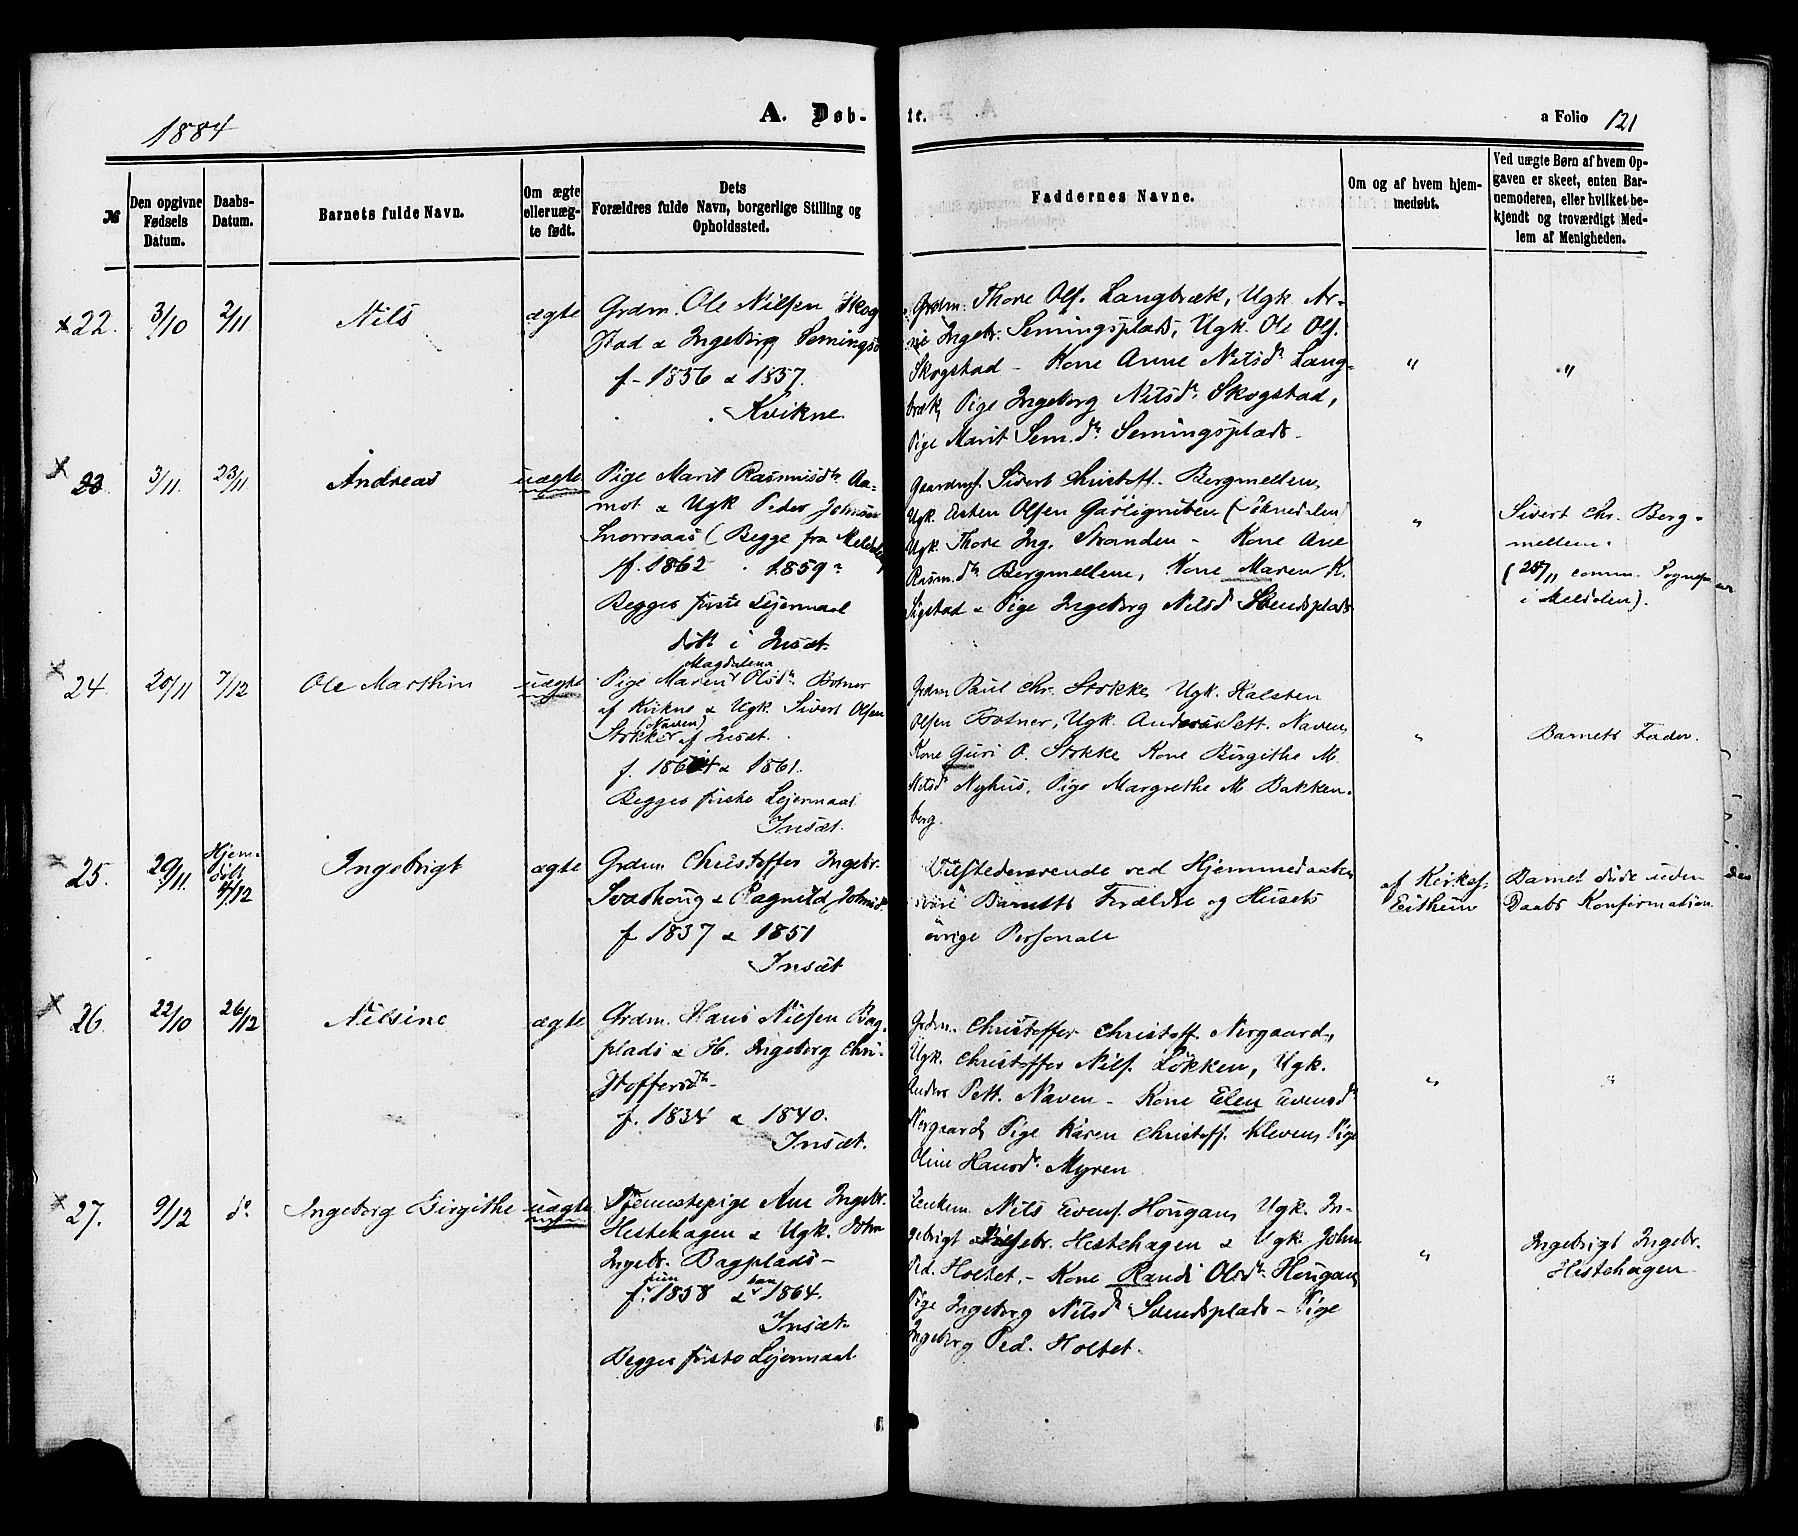 1884
A. Døb-
te.
a Folio 121
№
Den opgivne Fødsels Datum.
Daabs-Datum.
Barnets fulde Navn.
Om ægte eller uæg-te født.
Dets Forældres fulde Navn, borgerlige Stilling og Opholdssted.
Faddernes Navne.
Om og af hvem hjem-medøbt.
Ved uægte Børn af hvem Op-gaven er skeet, enten Bar-nemoderen, eller hvilket be-kjendt og troværdigt Med-lem af Menigheden.
x 22.
3/10
2/11
Nils
ægte
Grdm. Ole Nilsen Skog
stad & Ingeborg Semingsd
f - 1856 & 1857.
Kvikne
Grdm. Thore Ols. Langbræk, Ugk. Ar-
ne Ingebr. Semingsplads, Ugk. Ole Ols.
Skogstad - Kone Anne Nilsdr Lang-
bræk, Pige Ingeborg Nilsdr. Skogstad,
Pige Marit Sem.dr Semingsplads.
"
"
x 23
3/11.
23/11
Andreas
uægte
Pige Marit Rasmusdtr Aa-
mot & Ugk Peder Johnsen
Snorroaas (Begge fra Meldalen)
f. 1862 . 1859"
Begges første Lejermaal
døbt i Insæt.
Gaardmd. Sivert Christoff. Bergmellem,
Ugk. Esten Olsen Gåsligruben (Soknedalen)
Ugk. Thore Ing. Stranden - Kone Ane
Rasm.dtr Bergmellem, Kone Maren K.
Sigstad & Pige Ingeborg Nilsd Svendsplads
"
Sivert Chr. Berg-
mellem.
(28/11 comm. Sognepr
i Meldalen).
x 24.
20/11
7/12
Ole Marthin
uægte
Magdalena
Pige Maren Olsdr. Botner
af Kvikne & Ugk. Sivert Olsen
(Naven)
Stokke af Insæt.
f. 1864 & 1861.
Begges første Lejermaal
Insæt.
Grdm Paul Chr. Stokke, Ugk. Halsten
Olsen Botner, Ugk. Anders Pett. Naven,
Kone Guri O. Stokke Kone Birgithe M.
Nilsdr Nyhus, Pige Margrethe M. Bakken-
berg.
"
Barnets Fader.
x 25.
20/11.
Hjem-
døbt
4/12
Ingebrigt
ægte
Grdm. Christoffer Ingebr.
Svarthoug & Ragnild Johnsd.
f 1837 & 1851
Insæt
Tilstedeværende ved Hjemmedaaben
vare Barnets Forældre og Husets
øvrige Personale
af Kirkes.
Eithun
Barnet døde uden
Daabs Konfirmation.
x 26.
22/10
26/12
Nilsine
ægte
Grdm. Hans Nilsen Bag-
plads & H. Ingeborg Chri-
stoffersdtr
f. 1834 & 1840.
Insæt.
Grdm. Christoffer Christoff. Nergaard,
Ugk. Christoffer Nils. Løkken, Ugk.
Anders Pett. Naven - Kone Elen Evensdr
Nergaard, Pige Karen Christoff. Kleven, Pige
Oline Hansdr. Myren
"
"
x 27.
9/12
do
Ingeborg Birgithe
uægte
Tjenestepige Ane Ingebr.
Hestehagen & Ugk. John
Ingebr. Bagplads -
hun han
f. 1858 & 1864.
Insæt.
Begges første Lejermaal
Enkem Nils Evens. Hougan, Ugk. In-
gebrigt Ingebr. Hestehagen & Ugk. John
Ped. Holtet. - Kone Randi Olsdtr. Hougan,
Pige Ingeborg Nilsd Svendsplads - Pige
Ingeborg Ped. Holtet.
"
Ingebrigt Ingebr.
Hestehagen